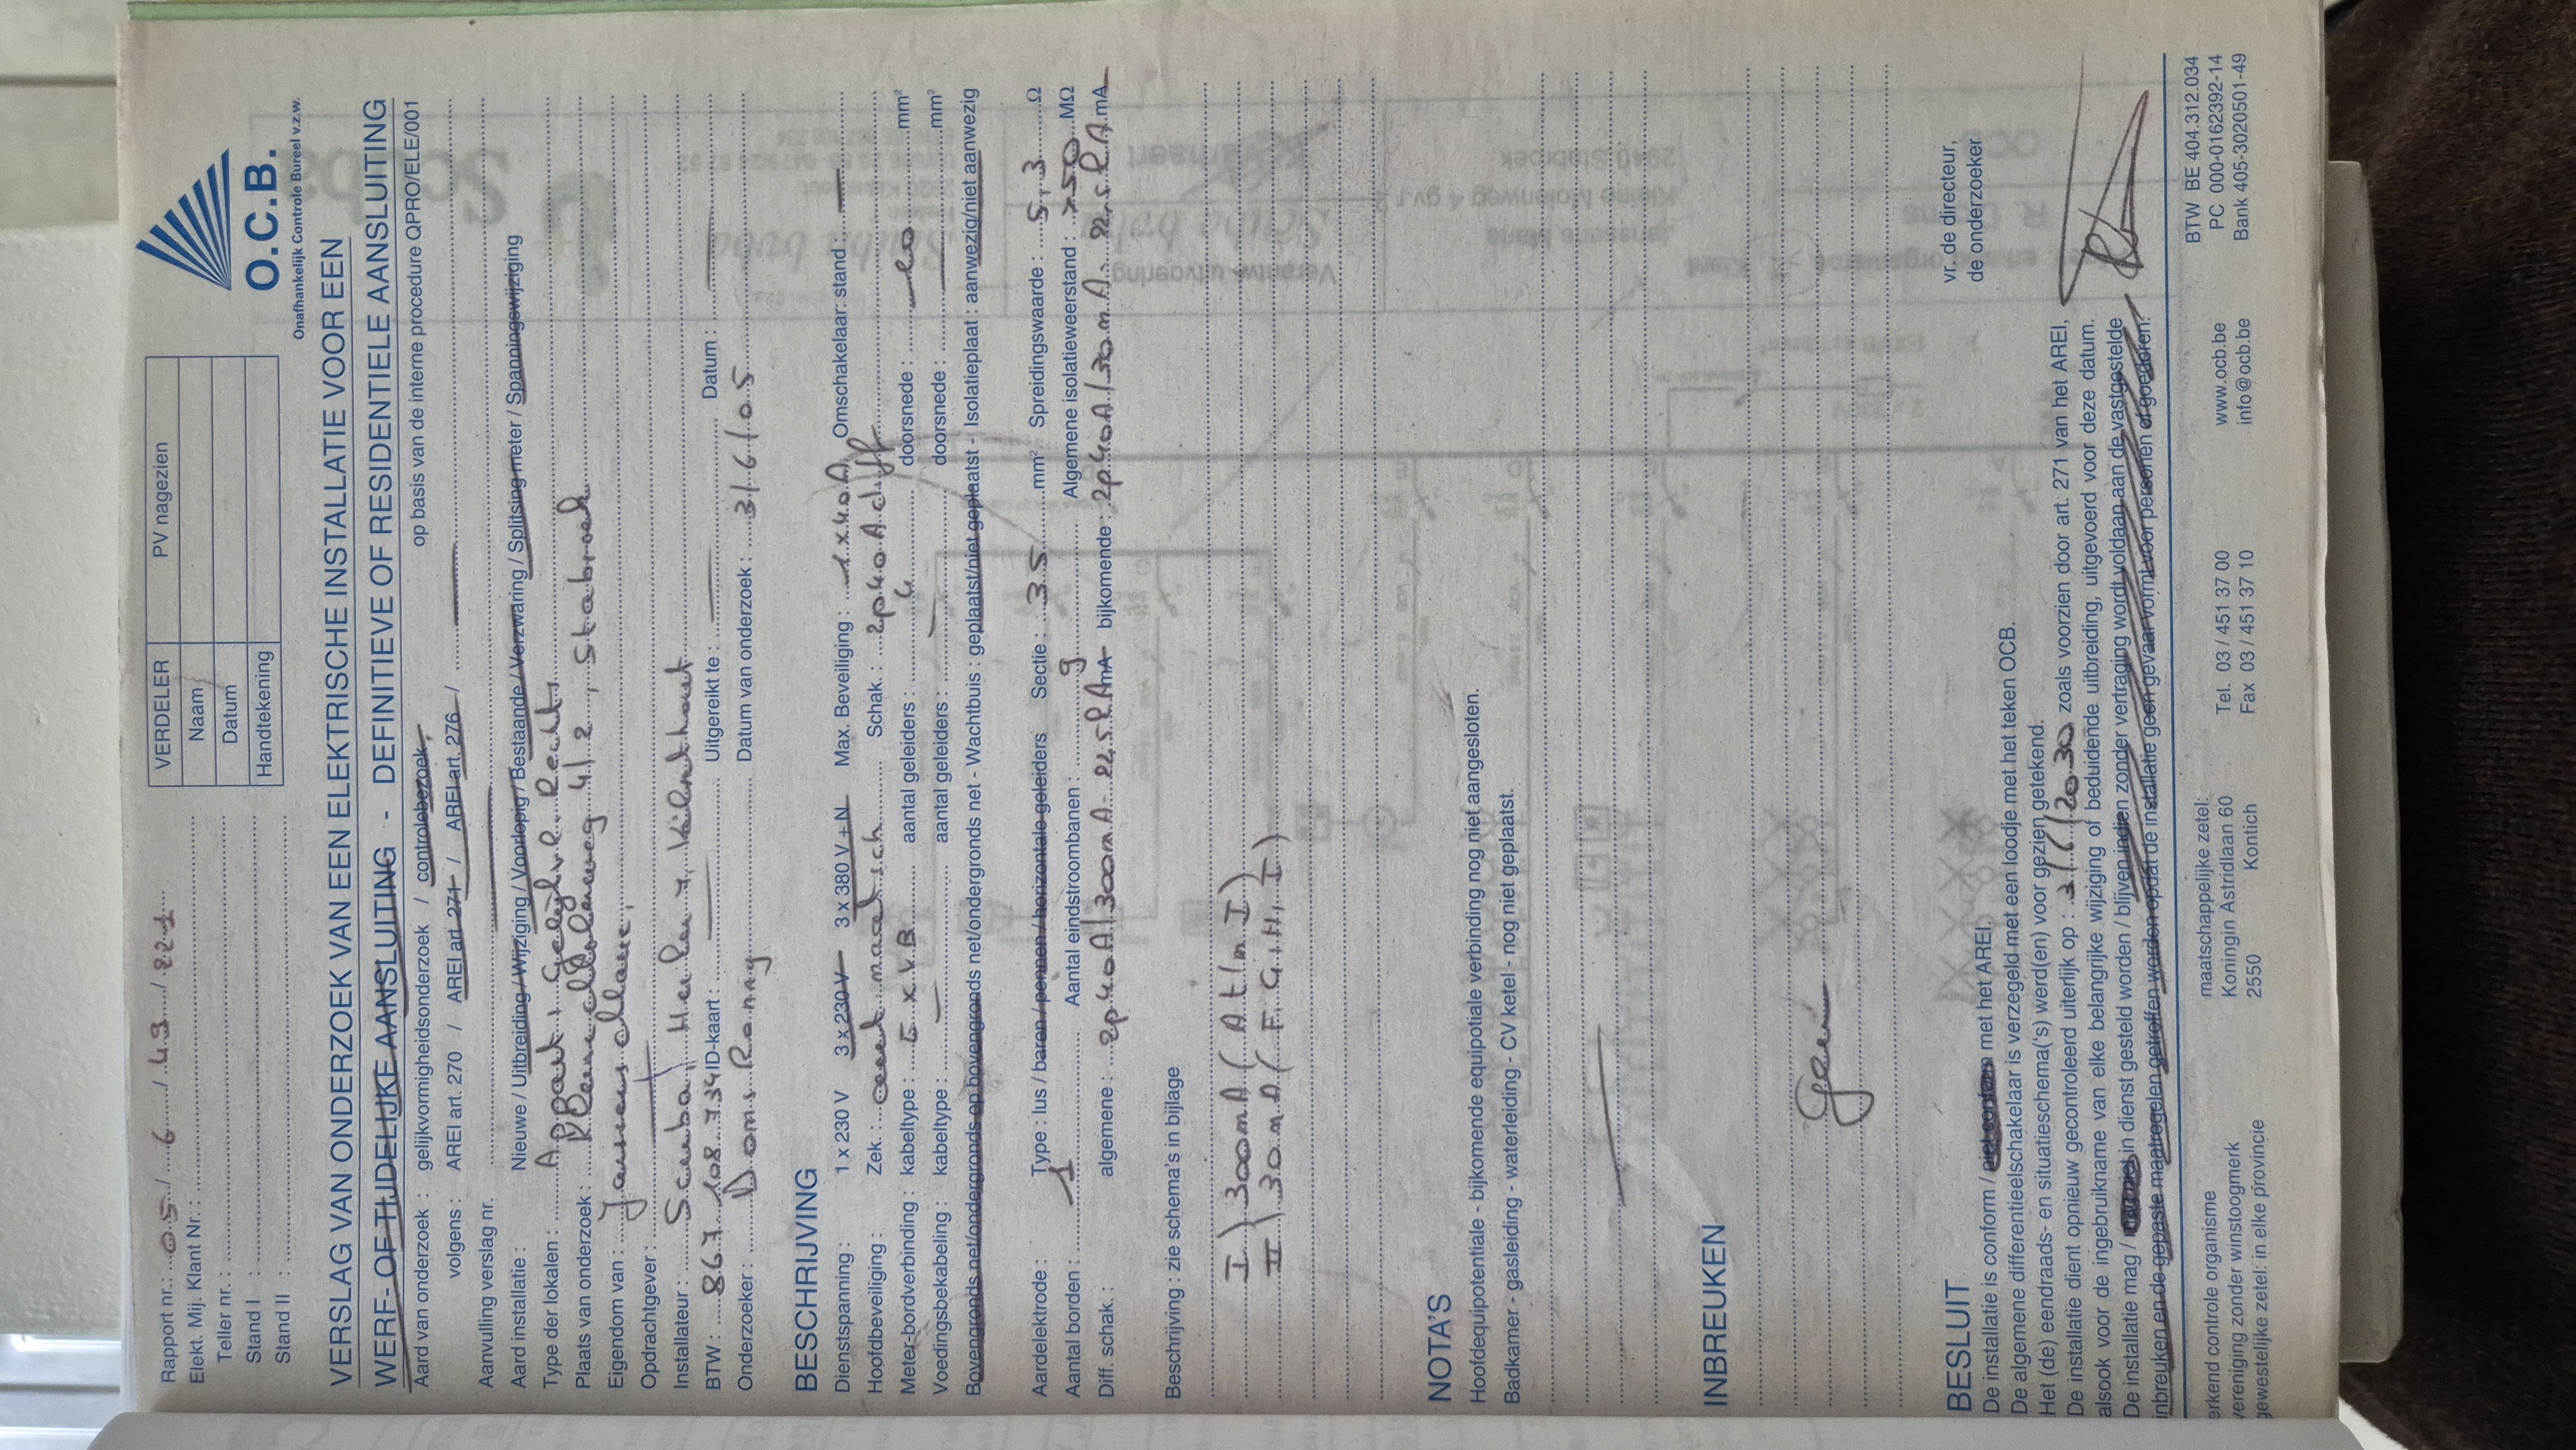 Rapport nr.: 05 / 6 / 49 / 221
Elekt. Mij. Klant Nr :
Teller nr. :
Stand I :
Stand II :
VERDELER PV nagezien
Naam
Datum
Handtekening
O.C.B.
Onafhankelijk Controle Bureel v.z.w.
VERSLAG VAN ONDERZOEK VAN EEN ELEKTRISCHE INSTALLATIE VOOR EEN
WERF- OF TIJDELIJKE AANSLUITING - DEFINITIEVE OF RESIDENTIELE AANSLUITING
Aard van onderzoek : gelijkvormigheidsonderzoek / controlebezoek, op basis van de interne procedure QPRO/ELE/001
volgens : AREI art. 270 / AREI art 271 / AREI art. 276 /
Aanvulling verslag nr.
Aard installatie : Nieuwe / Uitbreiding / Wijziging / Voorlopig / Bestaande / Verzwaring / Splitsing meter / Spanningswijziging
Type der lokalen : Appart. Gelijkvl. Rechts
Plaats van onderzoek : 4/2, Stabroek
Eigendom van :
Opdrachtgever :
Installateur : Kalmthout
BTW : 867.108.734 ID-kaart : Uitgereikte : Datum :
Onderzoeker : Doms Ronny Datum van onderzoek : 3/6/05
BESCHRIJVING
Dienstspanning : 1 x 230 V 3 x 230 V 3 x 380 V + N Max. Beveiliging : 1x40A Omschakelaar: stand :
Hoofdbeveiliging : Zek. : Schak. : 2p40A diff
Meter-bordverbinding : kabeltype : E.X.V.B. aantal geleiders : 4 doorsnede : 10 mm²
Voedingsbekabeling : kabeltype : aantal geleiders : doorsnede : mm²
Bovengronds net/ondergronds op bovengronds net/ondergronds net - Wachtbuis : geplaatst/niet geplaatst - Isolatieplaat : aanwezig/niet aanwezig
Aardelektrode : Type : lus / baren / pennen / horizontale geleiders Sectie : 35 mm² Spreidingswaarde : 5,3 Ω
Aantal borden : 1 Aantal eindstroombanen : 9 Algemene isolatieweerstand : >50 MΩ
Diff. schak. : algemene : 2p40A/300mA 22,5kA mA bijkomende : 2p40A/30mA 22,5kA mA
Beschrijving : zie schema's in bijlage
I) 300mA (A t/m I)
II) 30mA (F, G, H, I)
NOTA'S
Hoofdequipotentiale - bijkomende equipotiale verbinding nog niet aangesloten.
Badkamer - gasleiding - waterleiding - CV ketel - nog niet geplaatst.
INBREUKEN
Geen
BESLUIT
De installatie is conform / niet conform met het AREI.
De algemene differentieelschakelaar is verzegeld met een loodje met het teken OCB.
Het (de) eendraads- en situatieschema('s) werd(en) voor gezien getekend.
De installatie dient opnieuw gecontroleerd uiterlijk op : 3/6/2030 zoals voorzien door art. 271 van het AREI,
alsook voor de ingebruikname van elke belangrijke wijziging of beduidende uitbreiding, uitgevoerd voor deze datum.
De installatie mag / mag niet in dienst gesteld worden / blijven indien zonder vertraging wordt voldaan aan de vastgestelde
inbreuken en de gepaste maatregelen getroffen worden opdat de installatie geen gevaar vormt voor personen of goederen.
vr. de directeur,
de onderzoeker
erkend controle organisme
vereniging zonder winstoogmerk
gewestelijke zetel: in elke provincie
maatschappelijke zetel:
Koningin Astridlaan 60
2550 Kontich
Tel. 03 / 451 37 00
Fax 03 / 451 37 10
www.ocb.be
info@ocb.be
BTW BE 404.312.034
PC 000-0162392-14
Bank 405-3020501-49